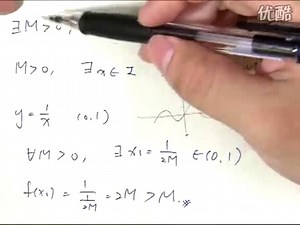 优酷
∃M>0,
M>0, ∃x∈I
y=1/x (0,1)
∀M>0, ∃x₁=1/2M ∈(0,1)
f(x₁)=1/(1/2M)=2M>M.